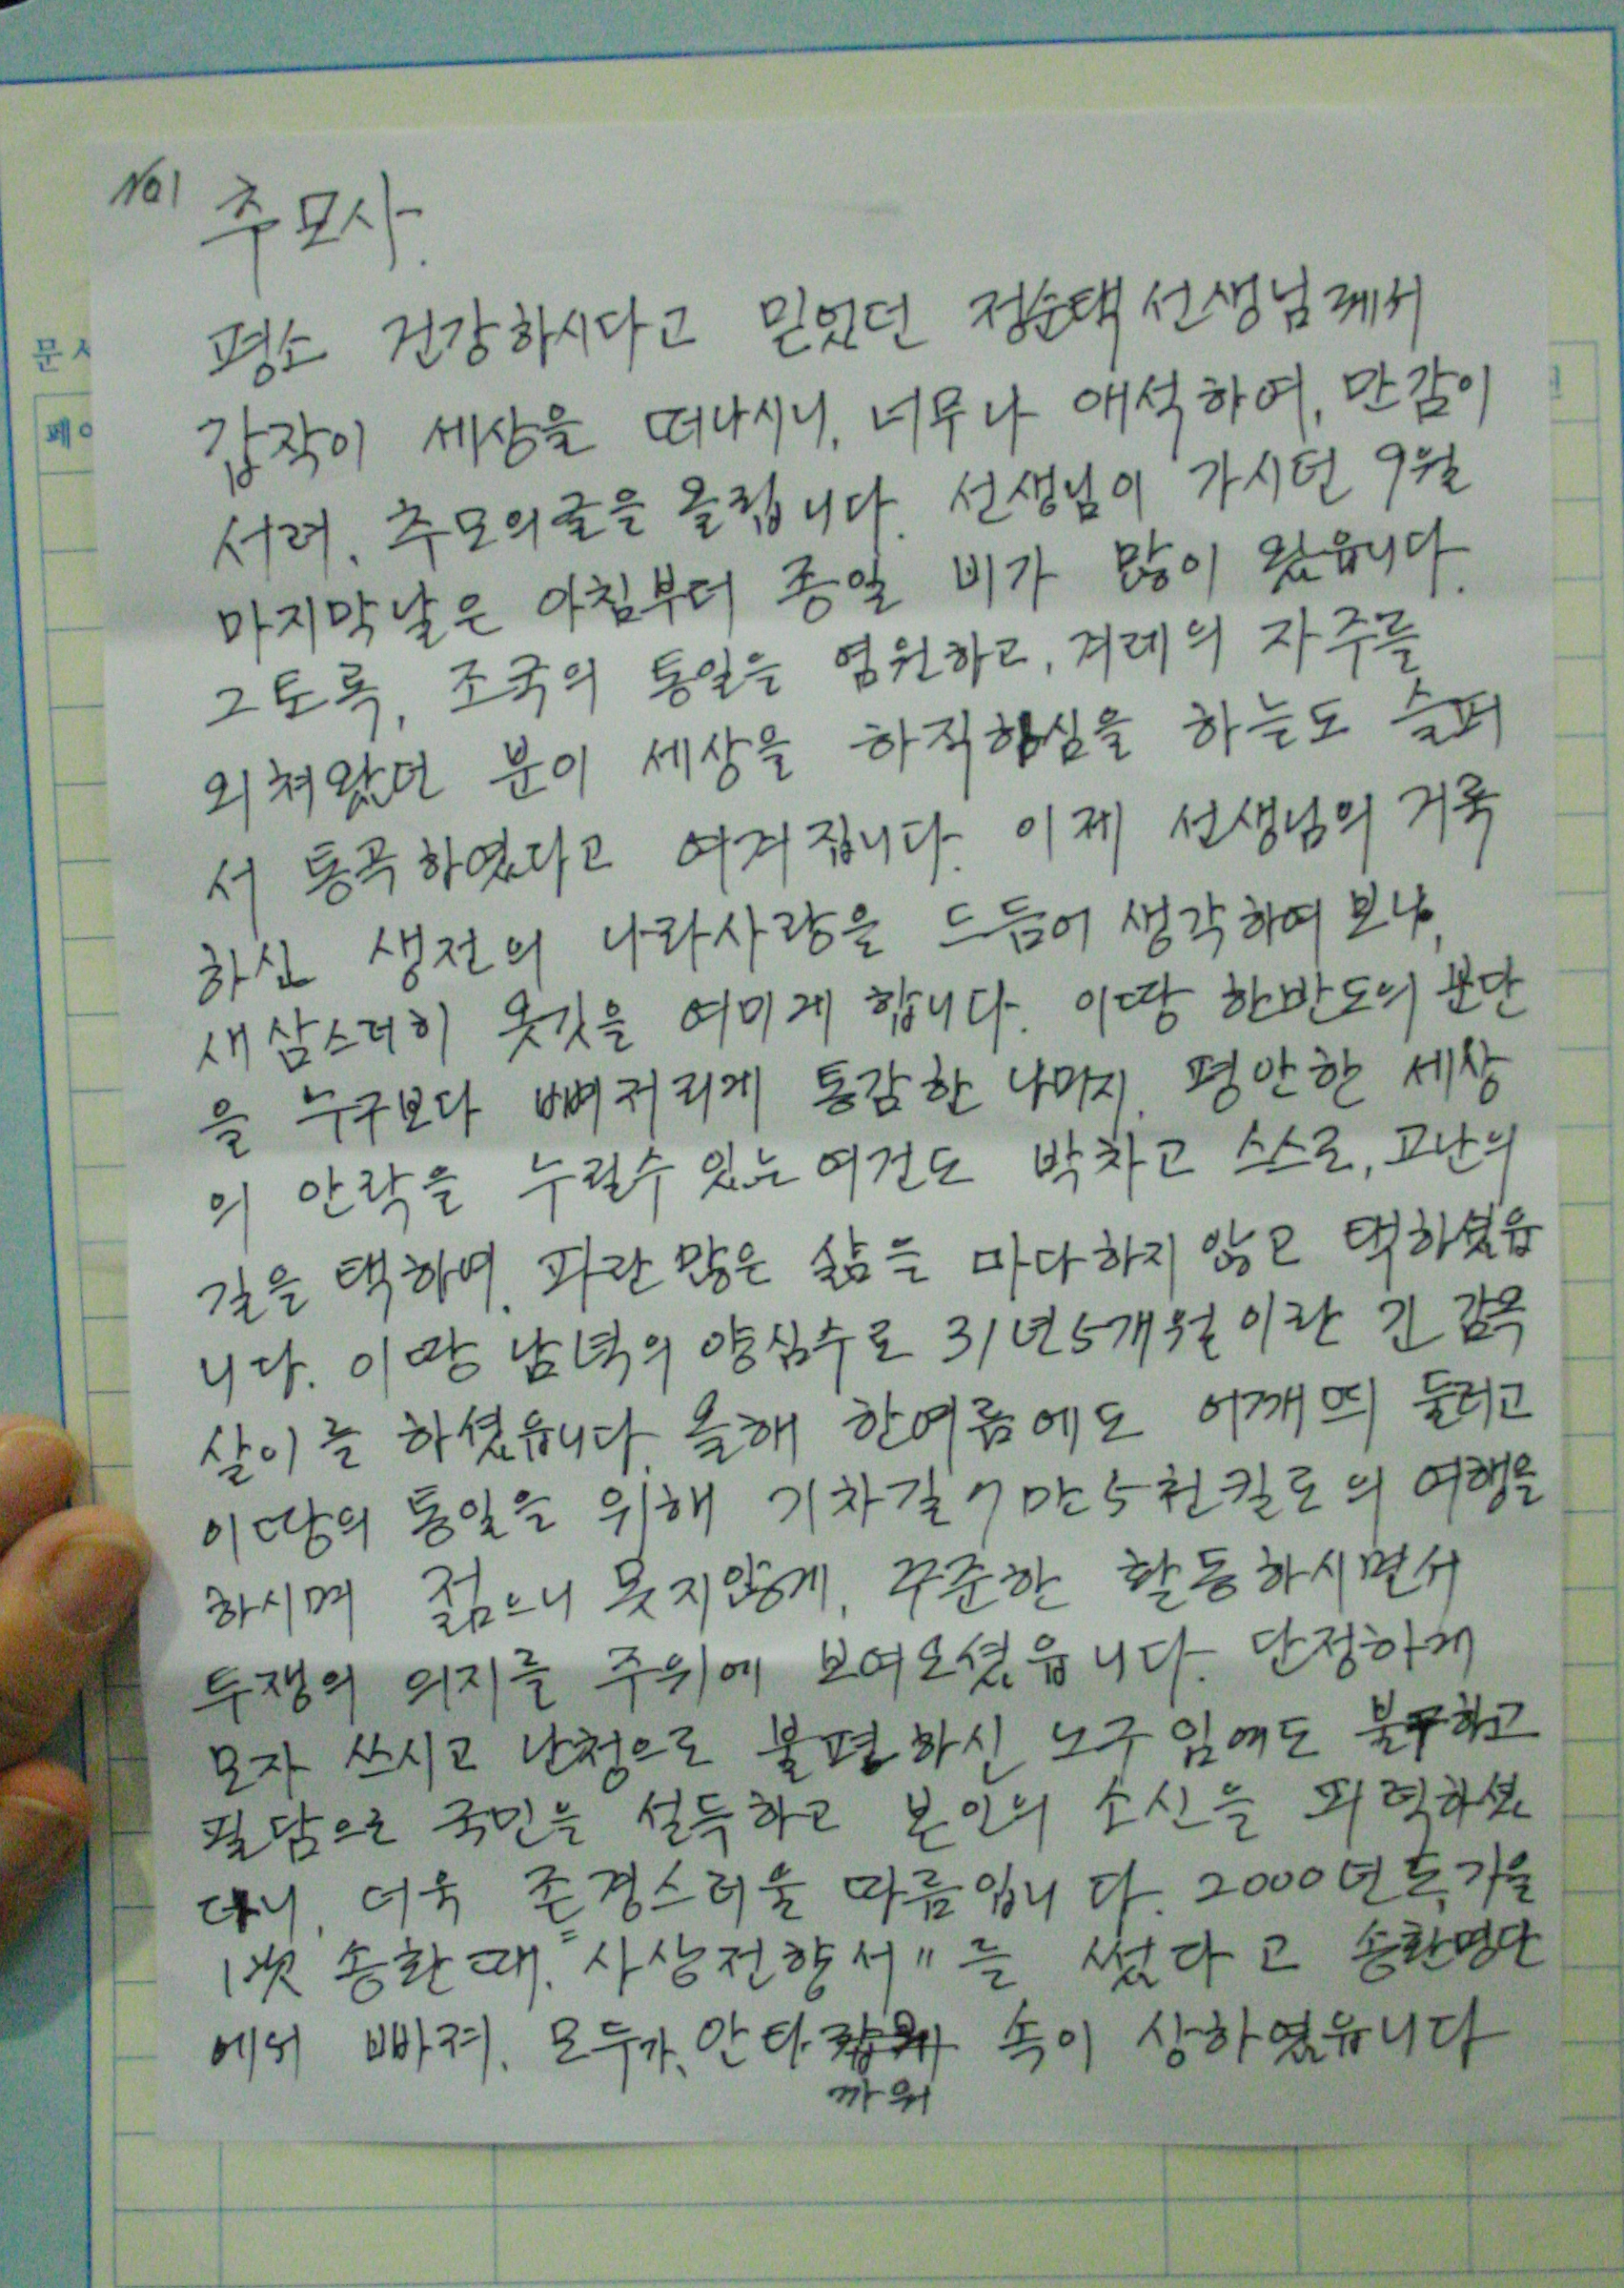 No1 추모사.
평소 건강하시다고 믿었던 정순택 선생님께서
갑작이 세상을 떠나시니, 너무나 애석하여, 만감이
서려, 추모의 글을 올립니다. 선생님이 가시던 9월
마지막날은 아침부터 종일 비가 많이 왔읍니다.
그토록, 조국의 통일을 염원하고, 겨레의 자주를
외쳐왔던 분이 세상을 하직하심을 하늘도 슬퍼
서 통곡하였다고 여겨집니다. 이제 선생님의 거룩
하신 생전의 나라사랑을 드듬어 생각하여 보니,
새삼스러히 옷깃을 여미게 합니다. 이땅 한반도의 분단
을 누구보다 뼈저리게 통감한 나머지, 평안한 세상
의 안락을 누릴수 있는 여건도 박차고 스스로, 고난의
길을 택하여, 파란 많은 삶을 마다하지 않고 택하셨읍
니다. 이땅 남녁의 양심수로 31년 5개월이란 긴 감옥
살이를 하셨읍니다. 올해 한여름에도 어깨띠 둘러고
이땅의 통일을 위해 기차길 7만5천킬로의 여행을
하시며 젊으니 못지않게, 꾸준한 활동하시면서
투쟁의 의지를 주위에 보여오셨읍니다. 단정하게
모자 쓰시고 난청으로 불편하신 노구임에도 불구하고
필담으로 국민을 설득하고 본인의 소신을 피력하셨
다니, 더욱 존경스러울 따름입니다. 2000년도 가을
1次 송환때, "사상전향서"를 썼다고 송환명단
에서 빠져, 모두가, 안타 속이 상하였읍니다
까워
문서
페이